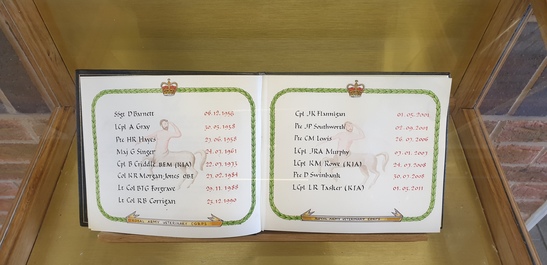 SSgt D Barnett 08.12.1956
LCpl A Gray 10.05.1958
Pte HR Hayes 23.06.1958
Maj G Singer 24.03.1961
Cpl B Criddle BEM (KIA) 22.07.1973
Col KR Morgan-Jones OBE 23.02.1984
Lt Col BTG 29.11.1988
Lt Col RB Corrigan 23.12.1990
ROYAL ARMY VETERINARY CORPS
Cpl JK Flannigan 01.05.2001
Pte JP Southworth 02.09.2003
Pte CM Lewis 26.07.2006
LCpl JRA Murphy 07.01.2007
LCpl KM Rowe (KIA) 24.07.2008
Pte D Swinbank 30.07.2008
LCpl LR Tasker (KIA) 01.03.2011
ROYAL ARMY VETERINARY CORPS